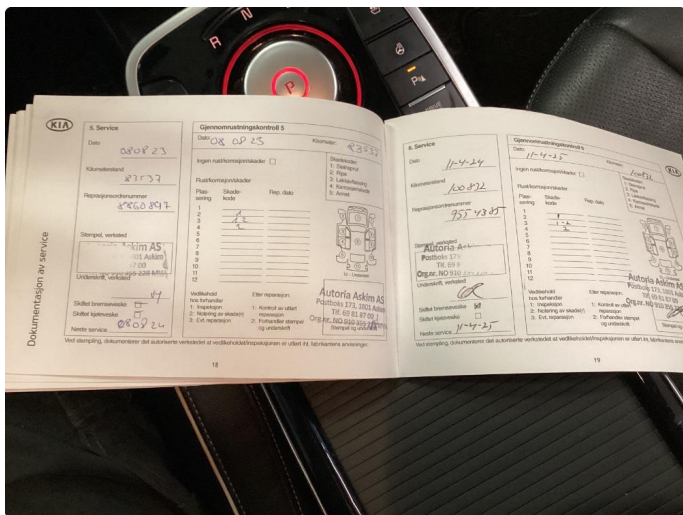 R
N
P
P
KIA
5. Service
Dato
080823
Kilometerstand
83537
Reparasjonsordrenummer
8860897
Stempel, verksted
kim AS
01 Askim
Underskrift, verksted
Skiftet bremsevæske
Skiftet kjølevæske
Neste service 080824
Dokumentasjon av service
Gjennomrustningskontroll 5
Dato: 08 08 23
Kilometer: 83537
Ingen rust/korrosjon/skader
Rust/korrosjon/skader
Plas-
sering
Skade-
kode
Rep. dato
1
2
3
4
5
6
7
8
9
10
11
12
Skadekoder:
1: Steinsprut
2: Ripe
3: Lakkavflassing
4: Karosseriskade
5: Annet
U - Underside
Vedlikehold
hos forhandler
1: Inspeksjon
2: Notering av skade(r)
3: Evt. reparasjon
Etter reparasjon:
1: Kontroll av utført
reparasjon
2: Forhandler stempel
og underskrift
Autoria Askim AS
Postboks 173, 1801 Askim
Tlf. 69 81 87 00
Org.nr. NO 910
Stempel og underskrift
Ved stempling, dokumenterer det autoriserte verkstedet at vedlikeholdet/inspeksjonen er utført iht. fabrikantens anvisninger.
18
6. Service
Dato
11-4-24
Kilometerstand
100892
Reparasjonsordrenummer
9554385
Stempel, verksted
Autoria
Postboks 173
Tlf. 69 8
Org.nr. NO 910
Underskrift, verksted
Skiftet bremsevæske
Skiftet kjølevæske
Neste service 11-4-25
Gjennomrustningskontroll 6
Dato:
11-4-25
Kilometer:
100892
Ingen rust/korrosjon/skader
Rust/korrosjon/skader
Plas-
sering
Skade-
kode
Rep. dato
1
2
3
4
5
6
7
8
9
10
11
12
Vedlikehold
hos forhandler
1: Inspeksjon
2: Notering av skade(r)
3: Evt. reparasjon
Etter reparasjon:
1: Kontroll av utført
reparasjon
2: Forhandler stempel
og underskrift
Autoria Askim AS
Postboks 173, 1801
Tlf. 69 81 87 00
Org.nr. NO 910
Stempel og
Ved stempling, dokumenterer det autoriserte verkstedet at vedlikeholdet/inspeksjonen er utført iht. fabrikantens anvisninger.
19